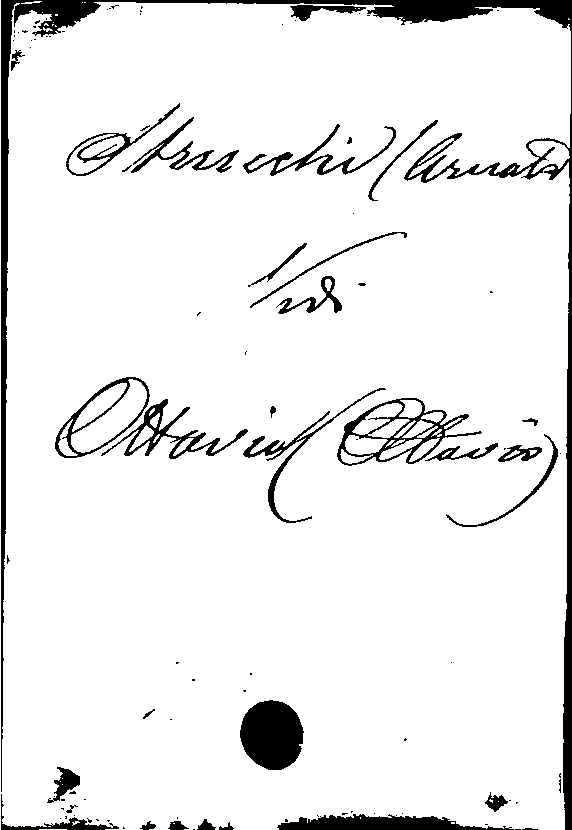 Strucchi (Arnald
Vidi
Ottavi (Ottavio)